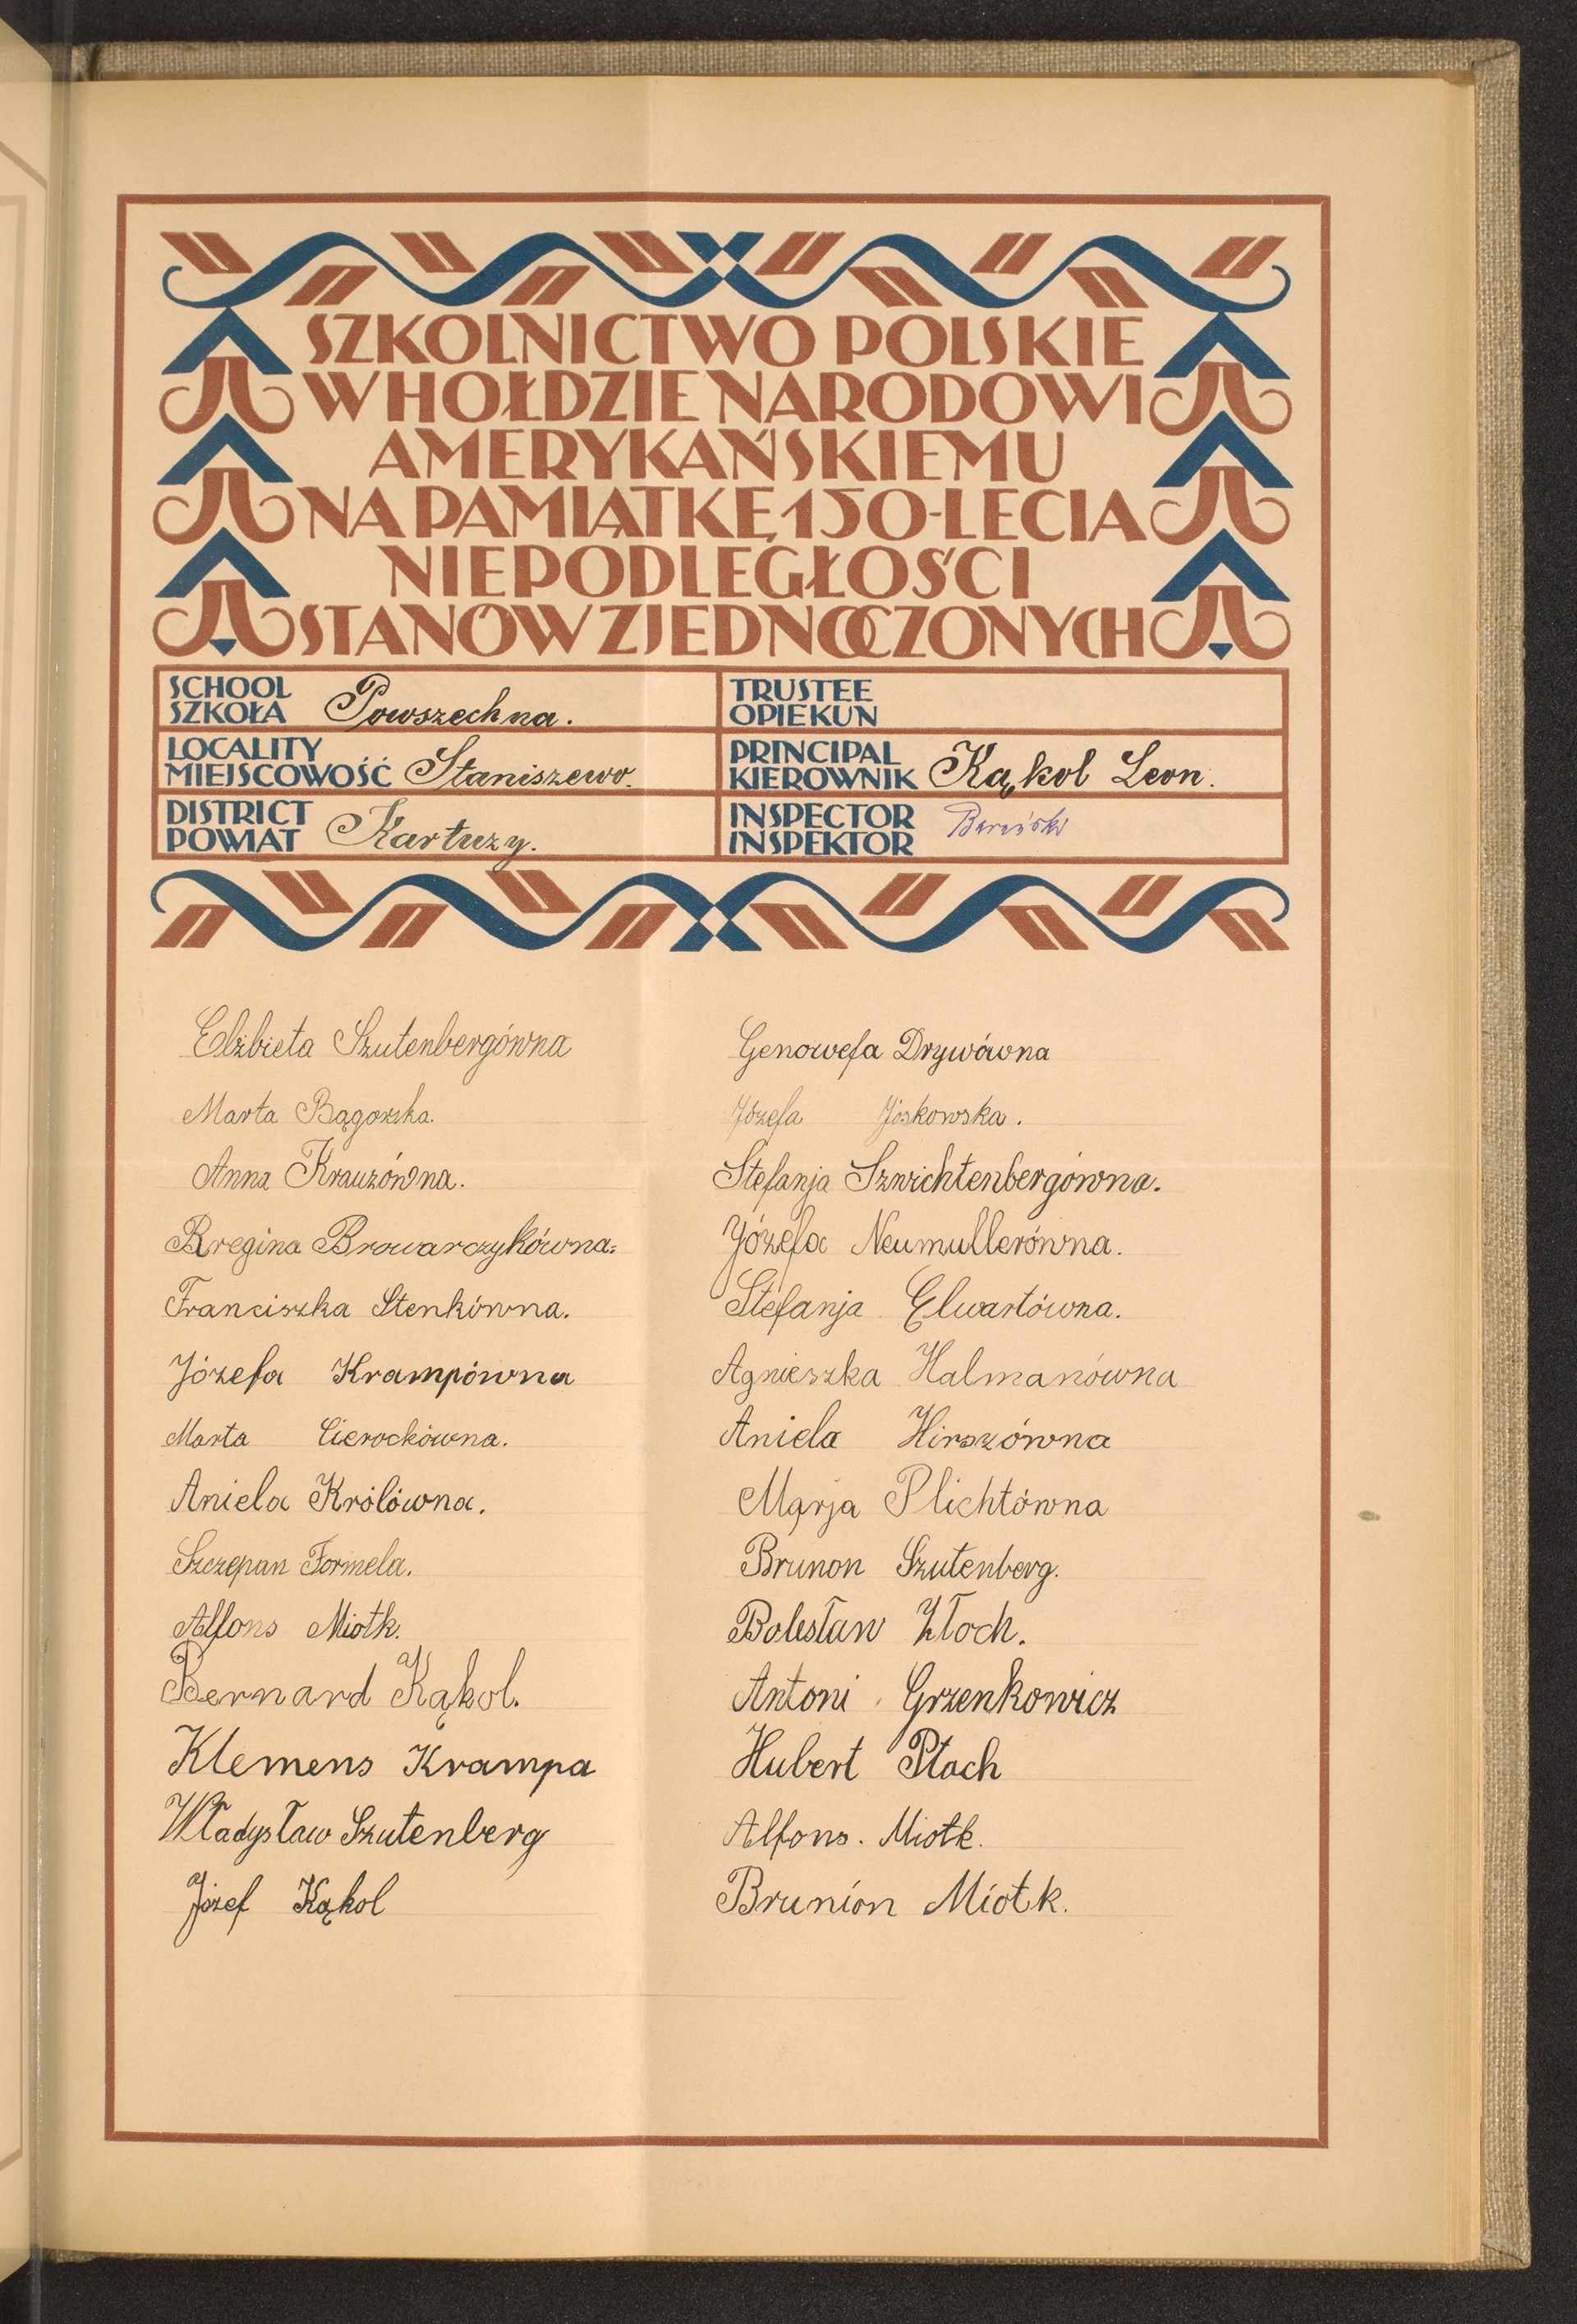 SZKOLNICTWO POLSKIE
W HOŁDZIE NARODOWI
AMERYKAŃSKIEMU
NA PAMIĄTKĘ 150-LECIA
NIEPODLEGŁOŚCI
STANÓW ZJEDNOCZONYCH
SCHOOL
SZKOŁA Powszechna.
TRUSTEE
OPIEKUN
LOCALITY
MIEJSCOWOŚĆ Staniszewo.
PRINCIPAL
KIEROWNIK Kąkol Leon.
DISTRICT
POWIAT Kartuzy.
INSPECTOR
INSPEKTOR
Elżbieta Szutenbergówna
Marta Bągorska.
Anna Krauzówna.
Rregina Browarczykówna.
Franciszka Stenkówna.
Józefa Krampówna
Marta Cierockówna.
Aniela Królówna.
Szczepan Formela.
Alfons Miotk.
Bernard Kąkol.
Klemens Krampa
Władysław Szutenberg
Józef Kąkol
Genowefa Drywówna
Józefa Joskowska.
Stefanja Szwichtenbergówna.
Józefa Neumullerówna.
Stefanja Elwartówna.
Agnieszka Halmanówna
Aniela Hirszówna
Marja Plichtówna
Brunon Szutenberg.
Bolesław Złoch.
Antoni Grzenkowicz
Hubert Ptach
Alfons. Miotk.
Brunion Miotk.